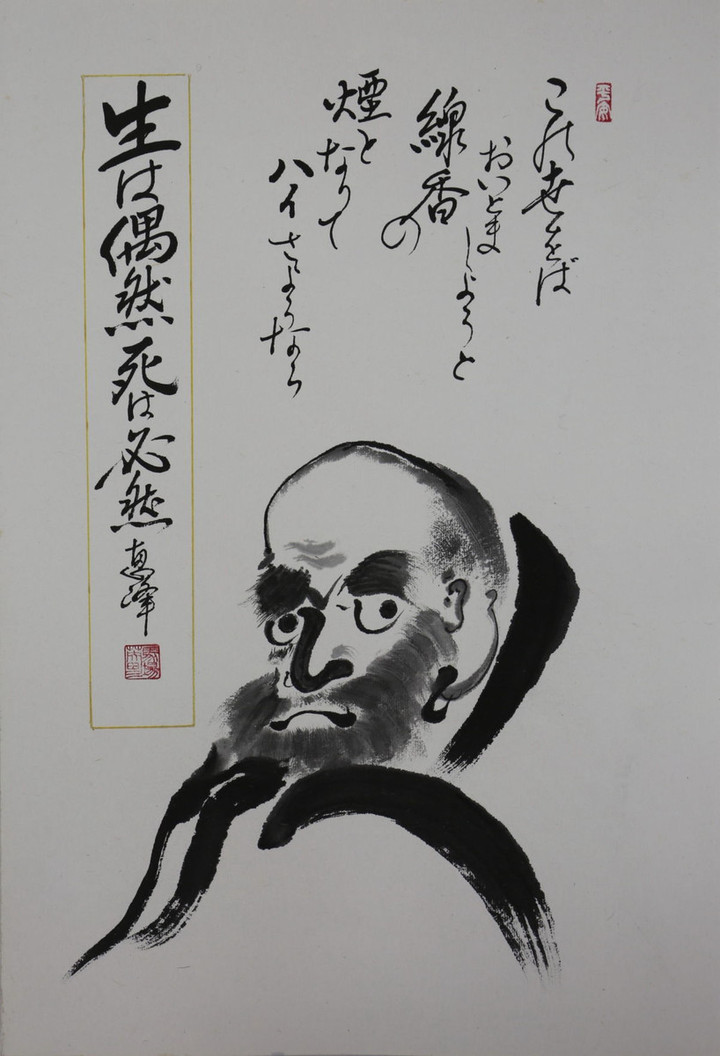 この世をば
おいとましようと
線香の
煙となりて
ハイさようなら
生は偶然死は必然 恵峰